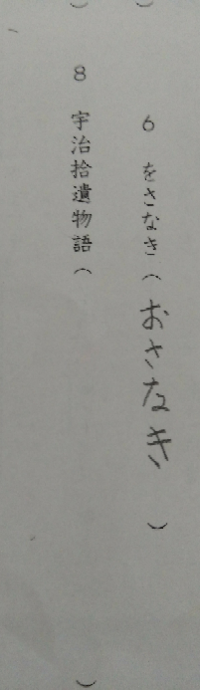 6 をさなき（おさなき）
8 宇治拾遺物語（　）